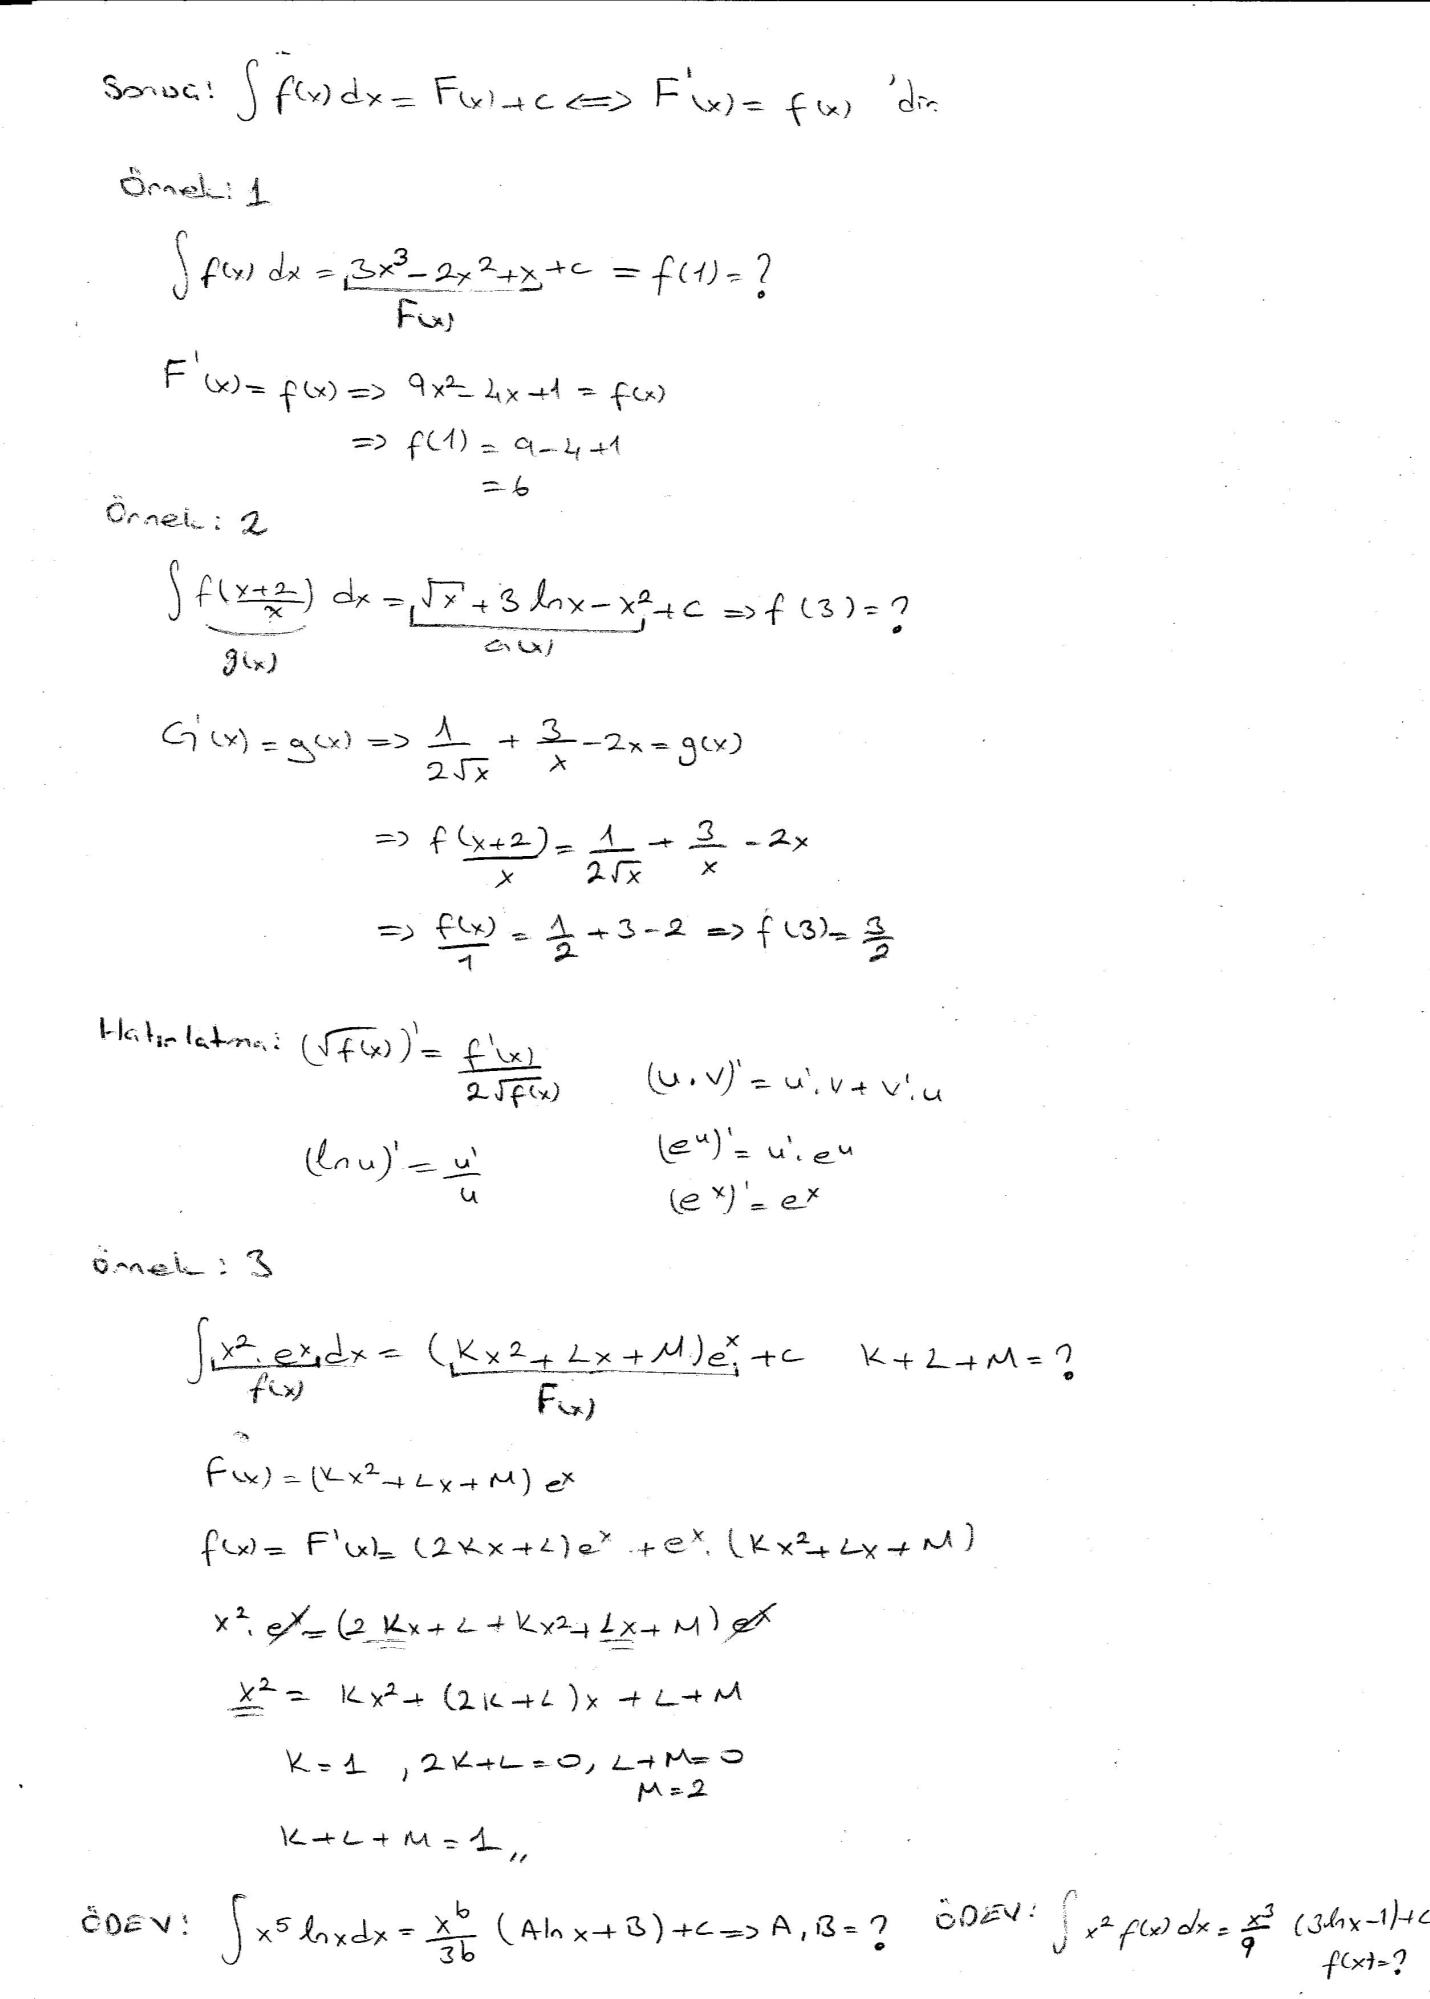 Sonuç: ∫ f(x) dx = F(x) + c <=> F'(x) = f(x) 'dir
Örnek: 1
∫ f(x) dx = 3x³ - 2x² + x + c = f(1) = ?
F(x)
F'(x) = f(x) => 9x² - 4x + 1 = f(x)
=> f(1) = 9 - 4 + 1
= 6
Örnek: 2
∫ f((x+2)/x) dx = √x + 3 lnx - x² + c => f(3) = ?
g(x) G(x)
G'(x) = g(x) => 1/(2√x) + 3/x - 2x = g(x)
=> f((x+2)/x) = 1/(2√x) + 3/x - 2x
=> f(x)/1 = 1/2 + 3 - 2 => f(3) = 3/2
Hatırlatma: (√f(x))' = f'(x)/(2√f(x)) (u.v)' = u'.v + v'.u
(ln u)' = u'/u (e^u)' = u'.e^u
(e^x)' = e^x
örnek: 3
∫ x².e^x dx = (Kx² + Lx + M)e^x + c K + L + M = ?
f(x) F(x)
F(x) = (Kx² + Lx + M) e^x
f(x) = F'(x) = (2Kx + L)e^x + e^x.(Kx² + Lx + M)
x².e^x = (2Kx + L + Kx² + Lx + M) e^x
x² = Kx² + (2K + L)x + L + M
K = 1 , 2K + L = 0, L + M = 0
M = 2
K + L + M = 1,,
ÖDEV: ∫ x⁵ lnx dx = x⁶/36 (A ln x + B) + c => A, B = ? ÖDEV: ∫ x² f(x) dx = x³/9 (3lnx - 1) + c
f(x) = ?